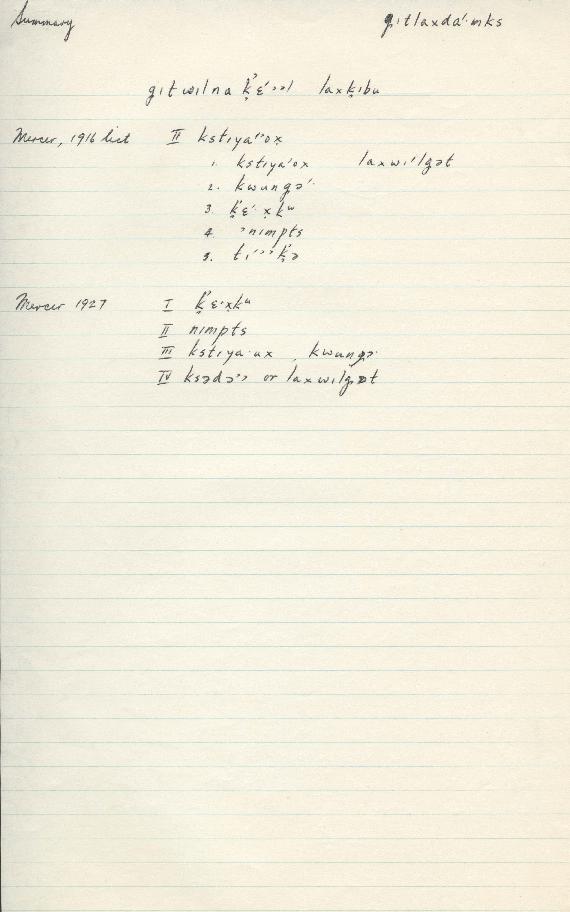 Summary gᴉtlaxdá·mks
gitwilna ḳ̓ɛ́ʼəl laxḳibu
Mercer, 1916 list II kstiyáʼox̣
1. kstiyáʼox̣ laxwílgət
2. kwungə́·
3. ḳ̓ɛ́·x̣kʷ
4. ʼnimpts
5. tíʼʼḳ̓ə
Mercer 1927 I ḳ̓ɛ·x̣kʷ
II nimpts
III kstiya·ux , kwungə·
IV ksədəʼʼ or laxwilgət